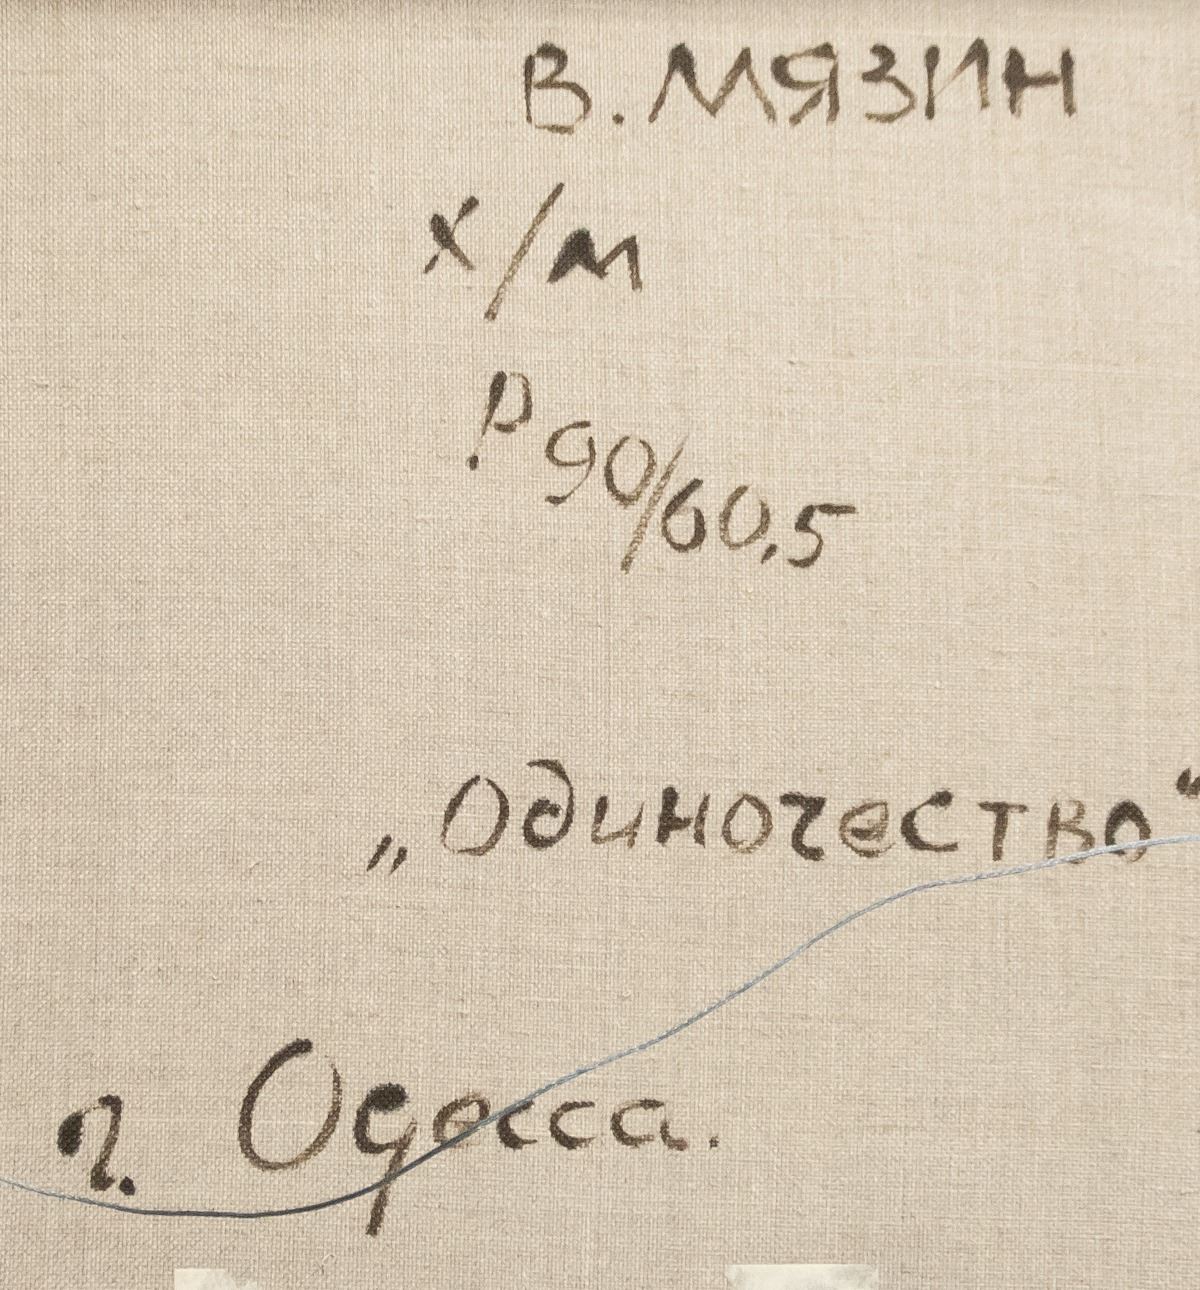 В. МЯЗИН
х/м
Р. 90/60,5
„Одиночество“
г. Одесса.